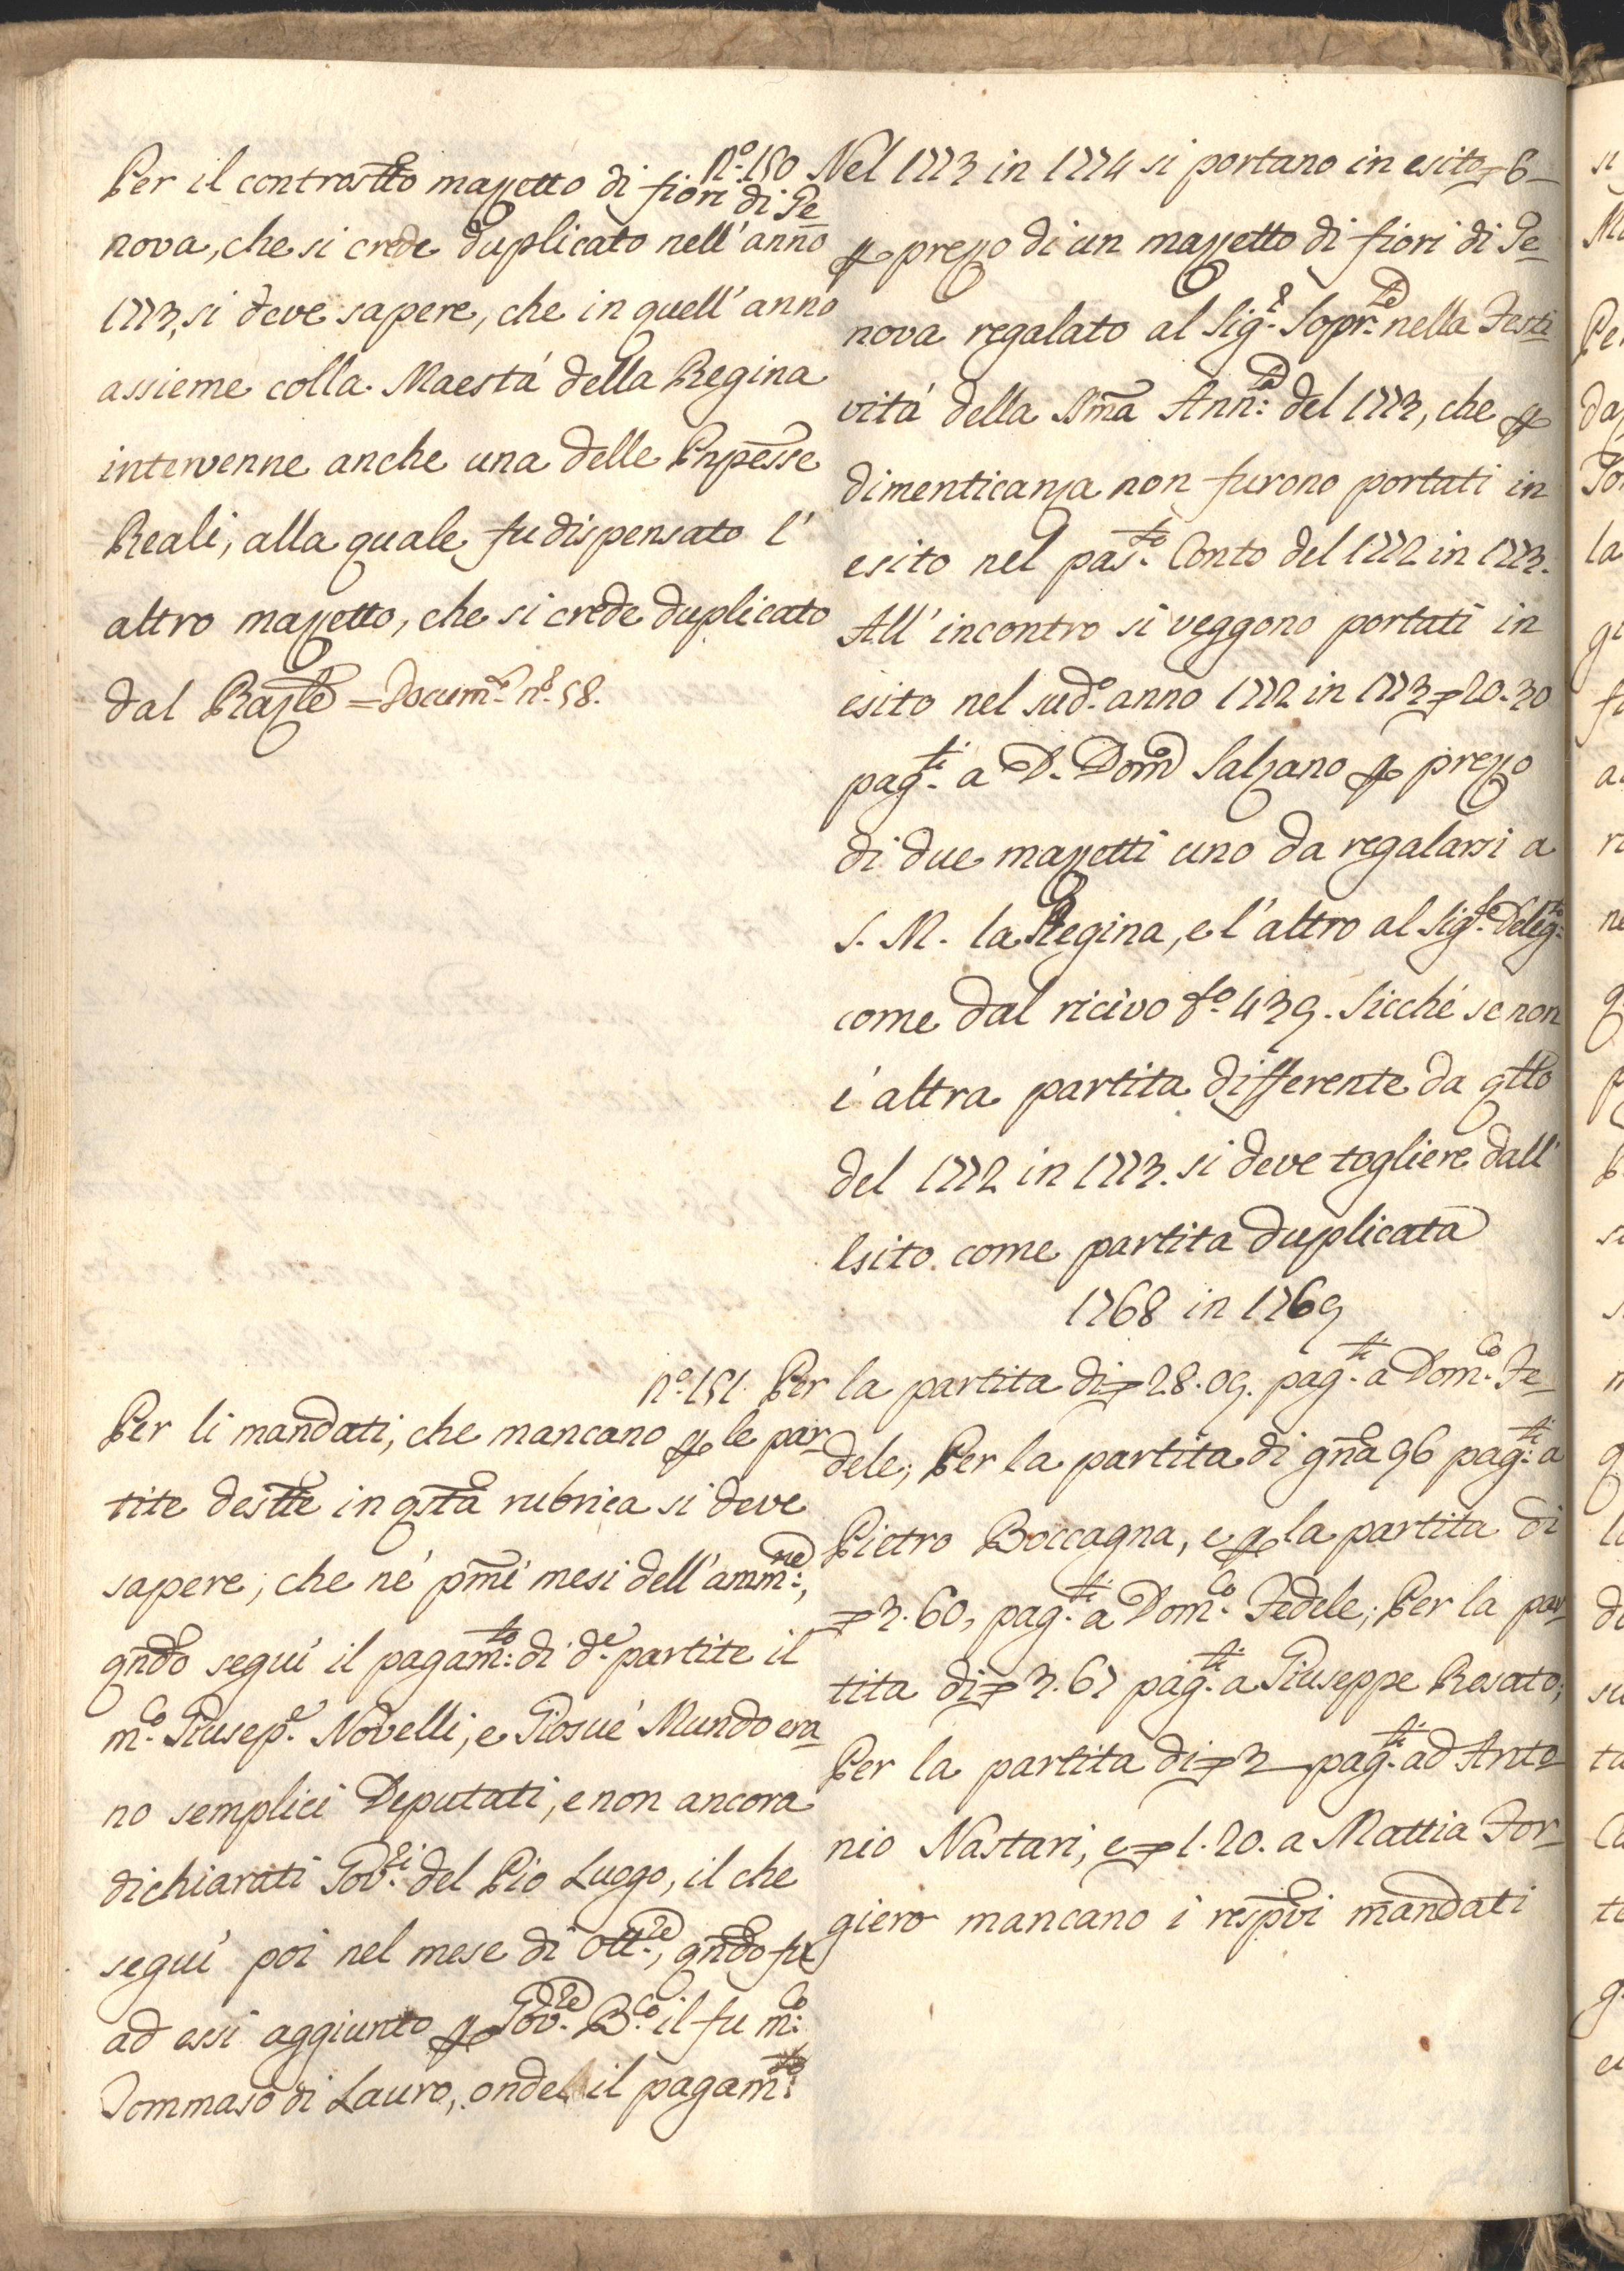 Per il contrastto mazzetto di fiori di Ge=
nova, che si crede duplicato nell'anno
1773, si deve sapere, che in quell'anno
assieme colla Maestá della Regina
intervenne anche una delle Pnpesse
Reali, alla quale fu dispensato l'
altro mazzetto, che si crede duplicato
dal Razle = Docum.º nº. 58.
Per li mandati, che mancano p le par=
tite descritte in qsta rubrica si deve
sapere, che né pmi mesi dell'amm.ne,
qndo seguí il pagam.to di d.e partite il
m.co Giusep.e Novelli, e Giosué Mundo era=
no semplici Deputati, e non ancora
dichiarati Gov.ri del Pio Luogo, il che
seguí poi nel mese di Ott.re, qndo fu
ad essi aggiunto p Gov.re B.co il fu m.co
Tommaso di Lauro, onde il pagam.to
nº. 150 Nel 1773 in 1774 si portano in esito 6=
p prezzo di un mazzetto di fiori di Ge=
nova regalato al Sig.r Sopr.te nella Festi=
vitá della SSma Ann.ta del 1773, che p
dimenticanza non furono portati in
esito nel pas.to Conto del 1772 in 1773.
All'incontro si veggono portati in
esito nel sud.o anno 1772 in 1773 20.30
pag.ti a D. Dom.co Salzano p prezzo
di due mazzetti uno da regalarsi a
S. M. la Regina, e l'altro al Sig.re Deleg.to
come dal ricivo f.o 439. Sicché se non
é altra partita differente da qllo
del 1772 in 1773. si deve togliere dall'
Esito come partita duplicata
1768 in 1769
nº. 151. Per la partita di 28.09. pag.ti a Dom.co Fe=
dele; Per la partita di gna 96 pag.ti a
Pietro Boccagna, e p la partita di
3.60, pag.ti a Dom.co Fedele; Per la par=
tita di 3.67 pag.ti a Giuseppe Rosato;
Per la partita di 3 — pag.ti ad Anto=
nio Nastari, e 1.20. a Mattia For=
giero mancano i respvi mandati